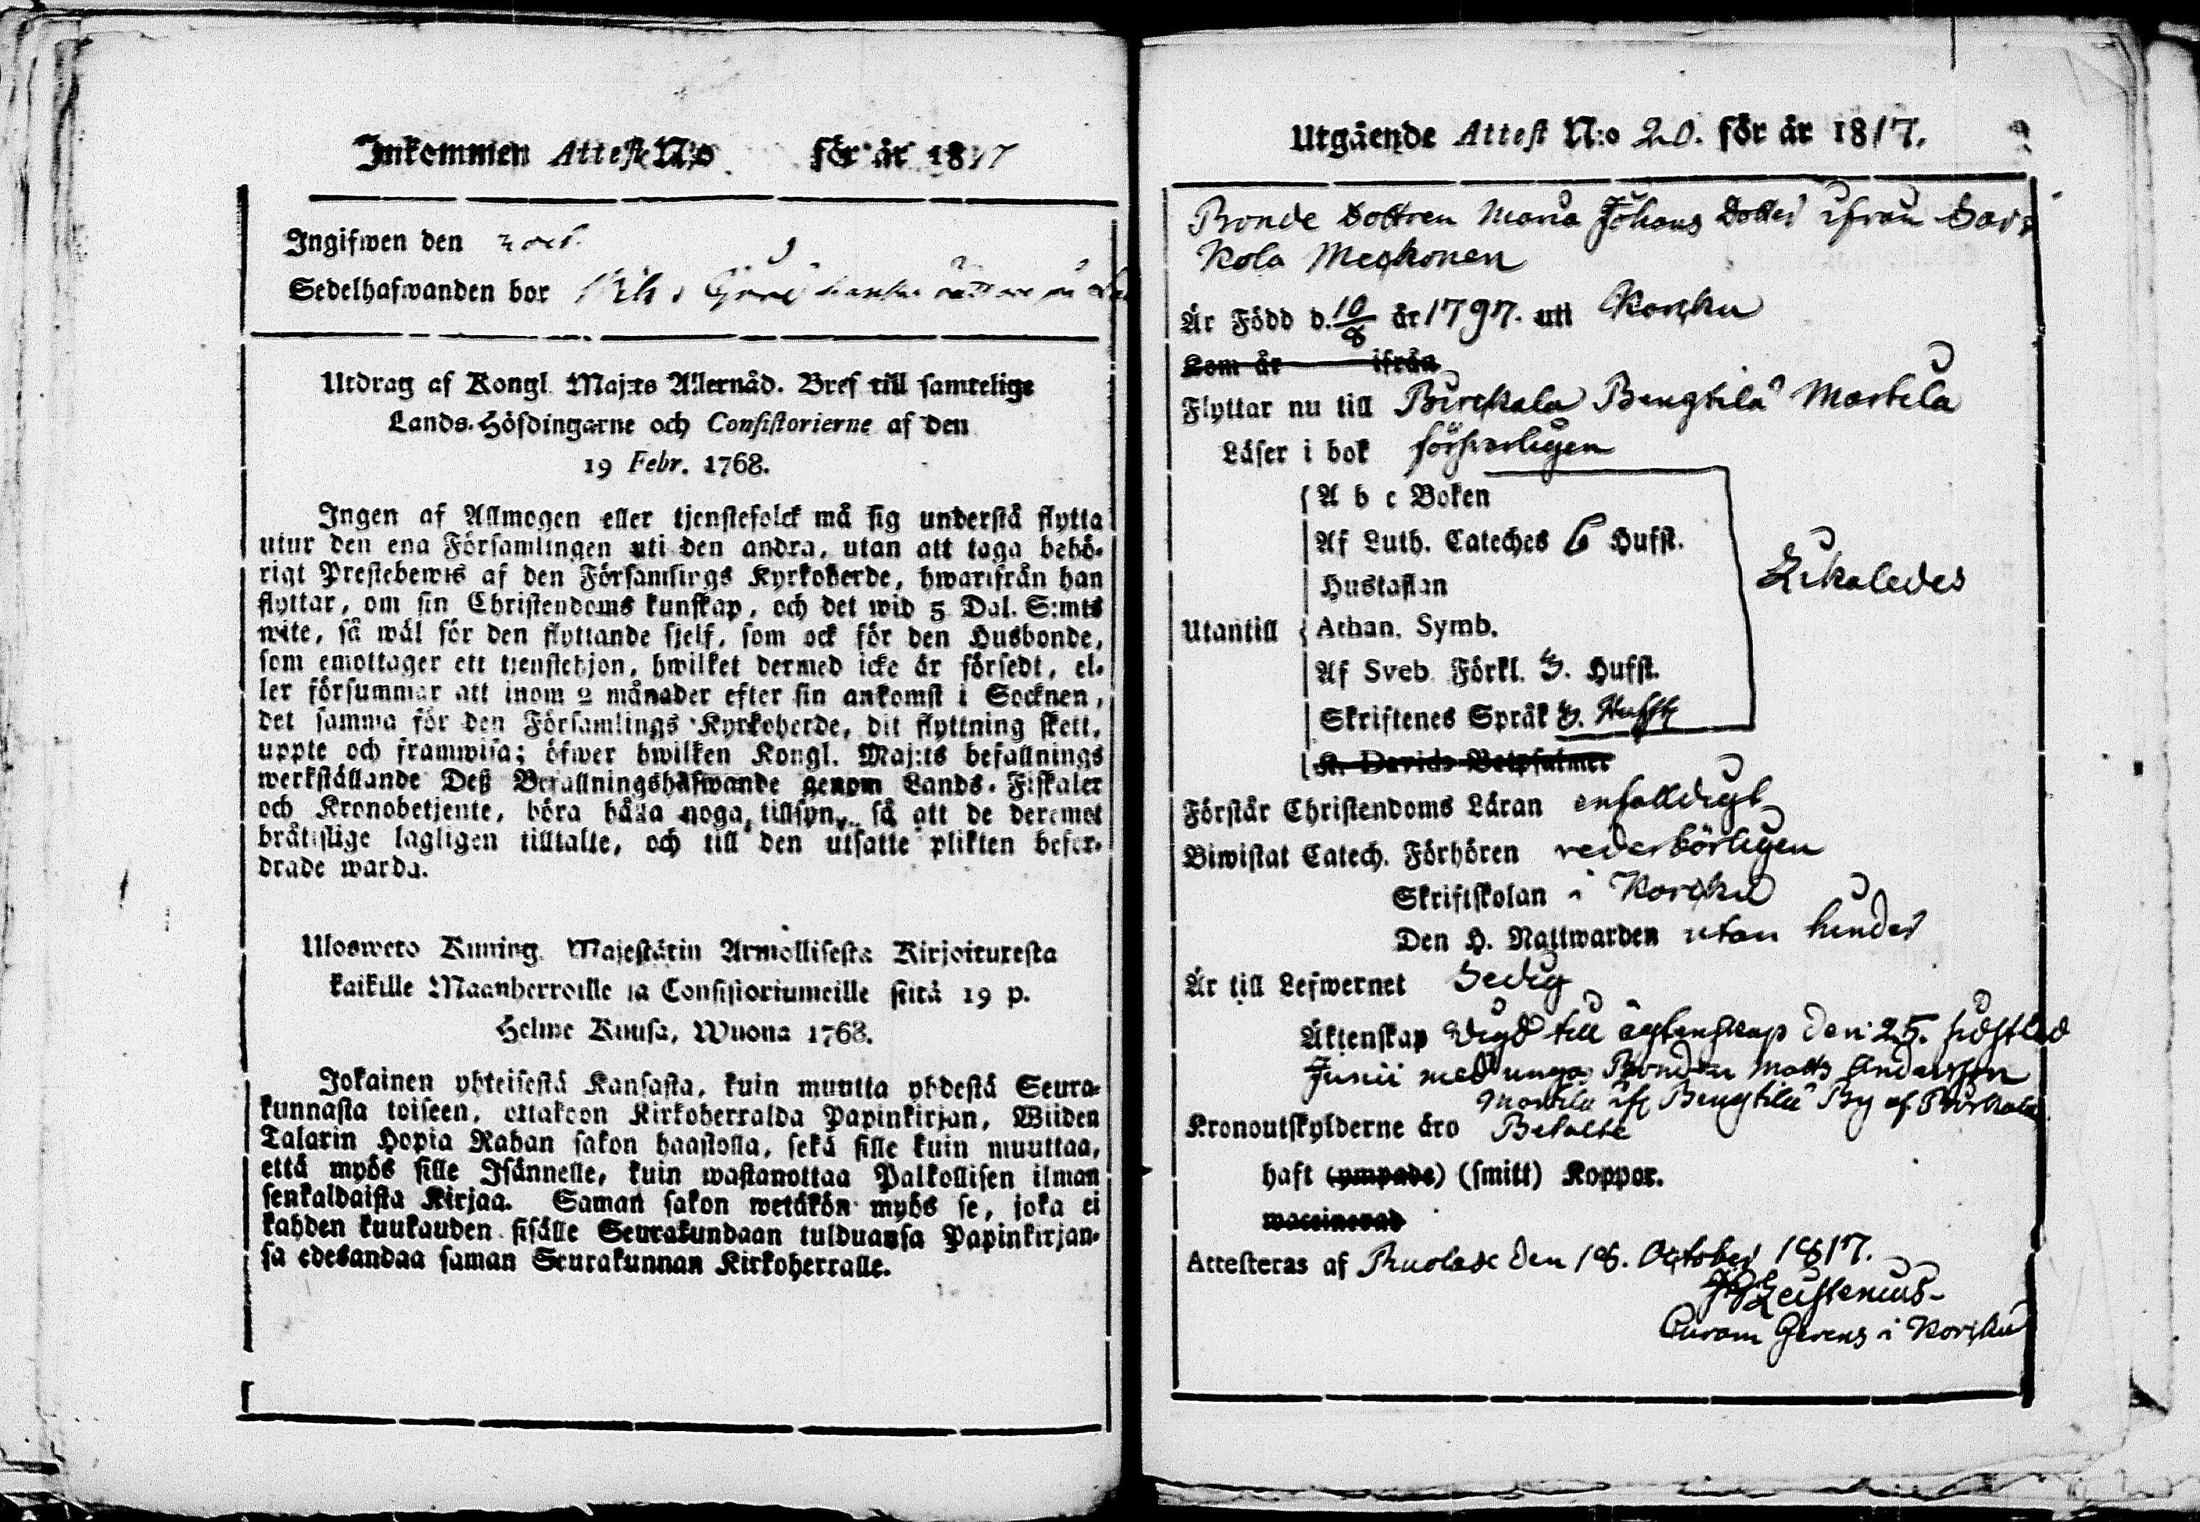 Inkommen Attest N:o för år 1817
Ingifwen den
Sedelhafwanden bor
Utdrag af Kongl. Maj:ts Allernåd. Bref till samtelige
Lands-Höfdingarne och Consistorierne af den
19 Febr. 1768.
Ingen af Allmogen eller tjenstefolck må sig understå flytta
utur den ena Församlingen uti den andra, utan att taga behö-
rigt Prestebewis af den Församlings Kyrkoherde, hwarifrån han
flyttar, om sin Christendoms kunskap, och det wid 5 Dal. S:mts
wite, så wäl för den flyttande sjelf, som ock för den Husbonde,
som emottager ett tjenstehjon, hwilket dermed icke är försedt, el-
ler försummar att inom 2 månader efter sin ankomst i Socknen,
det samma för den Församlings Kyrkoherde, dit flyttning skett,
uppte och framwisa; öfwer hwilken Kongl. Maj:ts befallnings
werkställande Deß Befallningshafwande genom Lands-Fiskaler
och Kronobetjente, böra hålla noga tillsyn, så att de deremot
bråtslige lagligen tilltalte, och till den utsatte plikten befor-
drade warda.
Ulosweto Kuning. Majestätin Armollisesta Kirjoituxesta
kaikille Maanherroille ja Consistoriumeille siitä 19 p.
Helme Kuusa, Wuona 1768.
Jokainen yhteisestä Kansasta, kuin muutta yhdestä Seura-
kunnasta toiseen, ottakoon Kirkoherralda Papinkirjan, Wiiden
Talarin Hopia Rahan sakon haastolla, sekä sille kuin muuttaa,
että myös sille Isännelle, kuin wastanottaa Palkollisen ilman
senkaldaista Kirjaa. Saman sakon wetäkön myös se, joka ei
kahden kuukauden sisälle Seurakundaan tulduansa Papinkirjan-
sa edesandaa saman Seurakunnan Kirkoherralle.
Utgående Attest N:o 20. för år 1817.
Bonde Dottren Maria Johans Dotter ifrån
Kola
Är Född d. 10/8 år 1797. uti Korpku
Kom år ifrån
Flyttar nu till Birckala Bengtilä Martila
Läser i bok försvarligen
A b c Boken
Af Luth. Cateches 6 Hufst.
Hustaflan
Utantill Athan. Symb.
Af Sveb. Förkl. 3. Hufst.
Skriftenes Språk 3. Hufst
K. Davids Botpsalmer
Förstår Christendoms Läran enfalldigt
Biwistat Catech. Förhören vederbörligen
Skriftskolan i
Den H. Nattwarden utan hinder
Är till Lefwernet Sedig
Äktenskap Vigd till ägtenskap den 25. sidstled
Junii med unga Bonden Matts Andersson
Martila ifr Bengtilä By af Birkala
Kronoutskylderne äro Betalte
haft (ympade) (smitt) Koppor.
waccinerad
Attesteras af den 18. October 1817.
Curam Gerens i